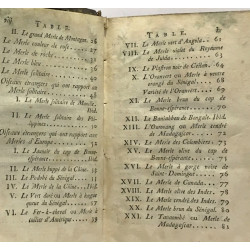 TABLE.
II. Le grand Merle de Montagne. 26
Le Merle couleur de rose.
Le Merle de roche.
Le Merle bleu.
Le Merle solitaire.
Oiseaux étrangers qui ont rapport au
Merle solitaire.
I. Le Merle solitaire de Manille.
Ibid.
II. Le Merle solitaire des Philippines.
Oiseaux étrangers qui ont rapport aux
Merles d'Europe.
I. Le Jaunoir du cap de Bonne-Espérance.
Ibid.
II. Le Merle huppé de la Chine.
III. Le Podobé du Sénégal.
IV. Le Merle de la Chine.
V. Le Vert-doré ou Merle à longue
queue du Sénégal.
VI. Le Fer-à-cheval ou Merle à
collier d'Amérique.
TABLE.
VII. Le Merle vert d'Angola. 61
VIII. Le Merle violet du Royaume
de Juida.
IX. Le Plastron noir de Ceylan.
X. L'Oranvert ou Merle à ventre
orangé du Sénégal.
Variété de l'Oranvert.
XI. Le Merle brun du cap de
Bonne-Espérance.
XII. Le Baniahbou de Bengale. Ibid.
XIII. L'Ourovang ou Merle cendré
de Madagascar.
XIV. Le Merle des Colombiers.
XV. Le Merle olive du cap de
Bonne-Espérance.
XVI. Le Merle à gorge noire de
Saint-Domingue.
XVII. Le Merle de Canada.
XVIII. Le Merle olive des Indes.
XIX. Le Merle cendré des Indes.
XX. Le Merle brun du Sénégal. 80
XXI. Le Tanaombé ou Merle de
Madagascar.